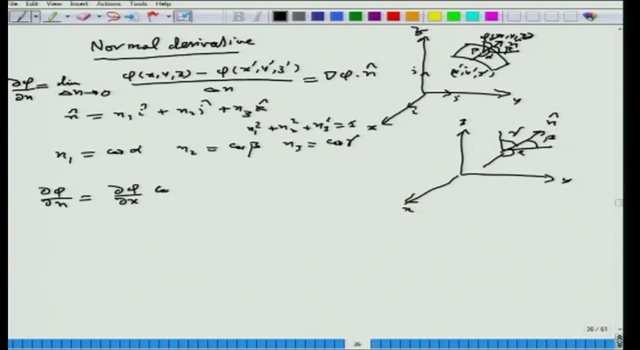 File Edit View Insert Actions Tools Help
Normal derivative
∂φ/∂n = lim Δn→0 (φ(x,y,z) − φ(x',y',z'))/Δn = ∇φ·n̂
n̂ = n₁ î + n₂ ĵ + n₃ k̂
n₁² + n₂² + n₃² = 1
n₁ = cos α n₂ = cos β n₃ = cos γ
∂φ/∂n = ∂φ/∂x co
z
φ(x,y,z)
(x',y',z')
y
x
z
n̂
γ
β
α
y
x
26 / 61
26